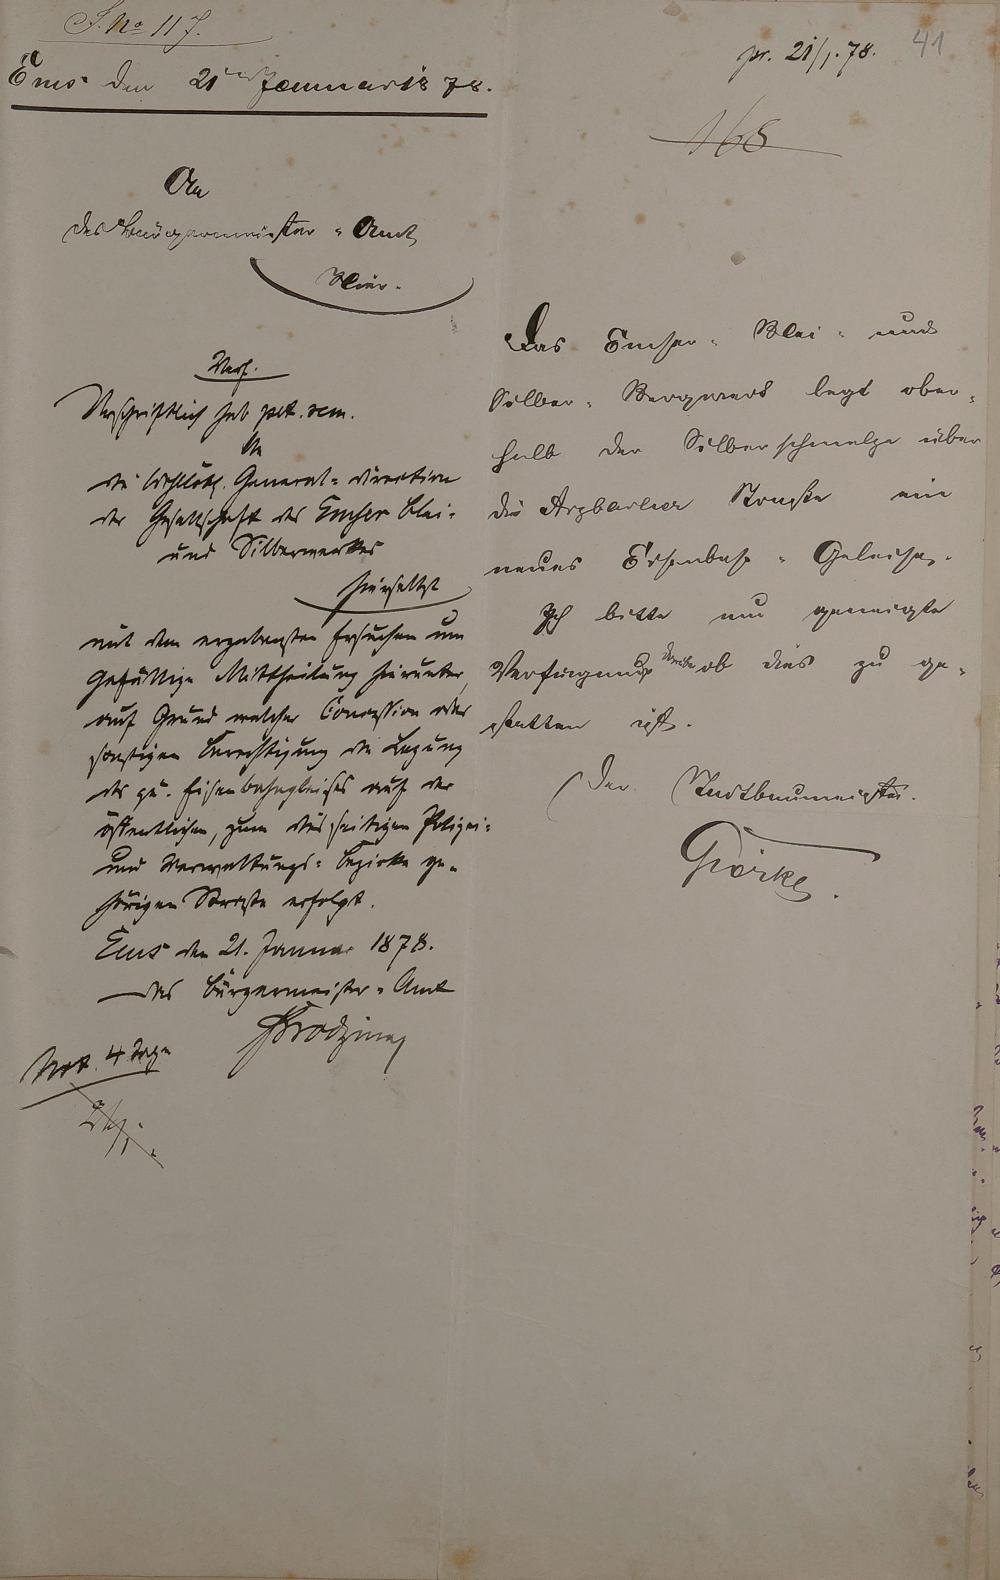 J. No 117.
Ems den 21ten Januar 1878.
An
das Bürgermeister-Amt
Hier.
pr. 21/1. 78.
41
168
Das Emser-Blei- und
Silber-Bergwerk legt ober-
halb der Silberschmelze über
die Arzbacher Straße ein
neues Eisenbahn-Geleise.
Ich bitte um geneigte
Verfügung darüber ob dies zu ge-
statten ist.
Der Stadtbaumeister.
Görke.
Urschriftlich
An
die Wohllöbl. General-Direction
der Gesellschaft des Emser Blei-
und Silberwerkes
hierselbst
mit dem ergebensten Ersuchen um
gefällige Mittheilung hierunter,
auf Grund welcher Concession oder
sonstigen Berechtigung die Legung
des qu. Eisenbahngleises auf der
öffentlichen, zum diesseitigen Polizei-
und Verwaltungs-Bezirke ge-
hörigen Straße erfolgt.
Ems den 21. Januar 1878.
Das Bürgermeister-Amt
4 Tage